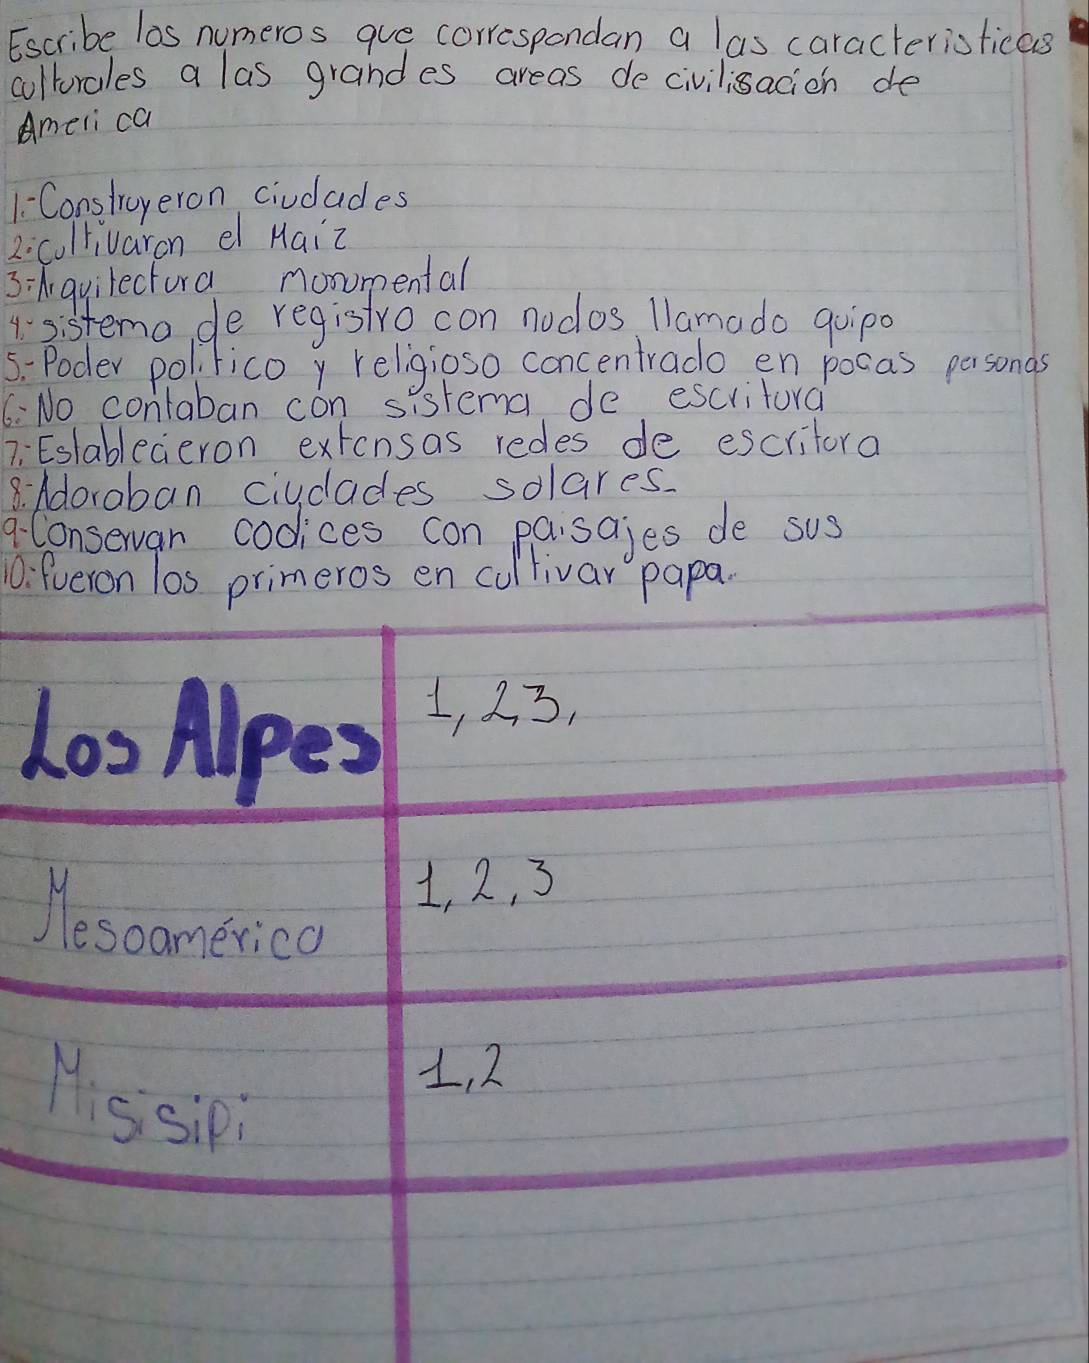 Escribe los numeros que correspondan a las caracteristicas
culturales a las grandes areas de civilisación de
America
1.-Construyeron ciudades
2.-Cultivaron el Maiz
3.-Arquitectura Monumental
4.-sistema de registro con nudos llamado quipo
5.-Poder politico y religioso concentrado en pocas personas
6.-No contaban con sistema de escritura
7.-Establecieron extensas redes de escritura
8.-Adoraban ciudades solares.
9-Conservan codices con paisajes de sus
10.-fueron los primeros en cultivar papa.
Los Alpes 1, 2,3,
Mesoamérica 1, 2, 3
Misisipi 1,2